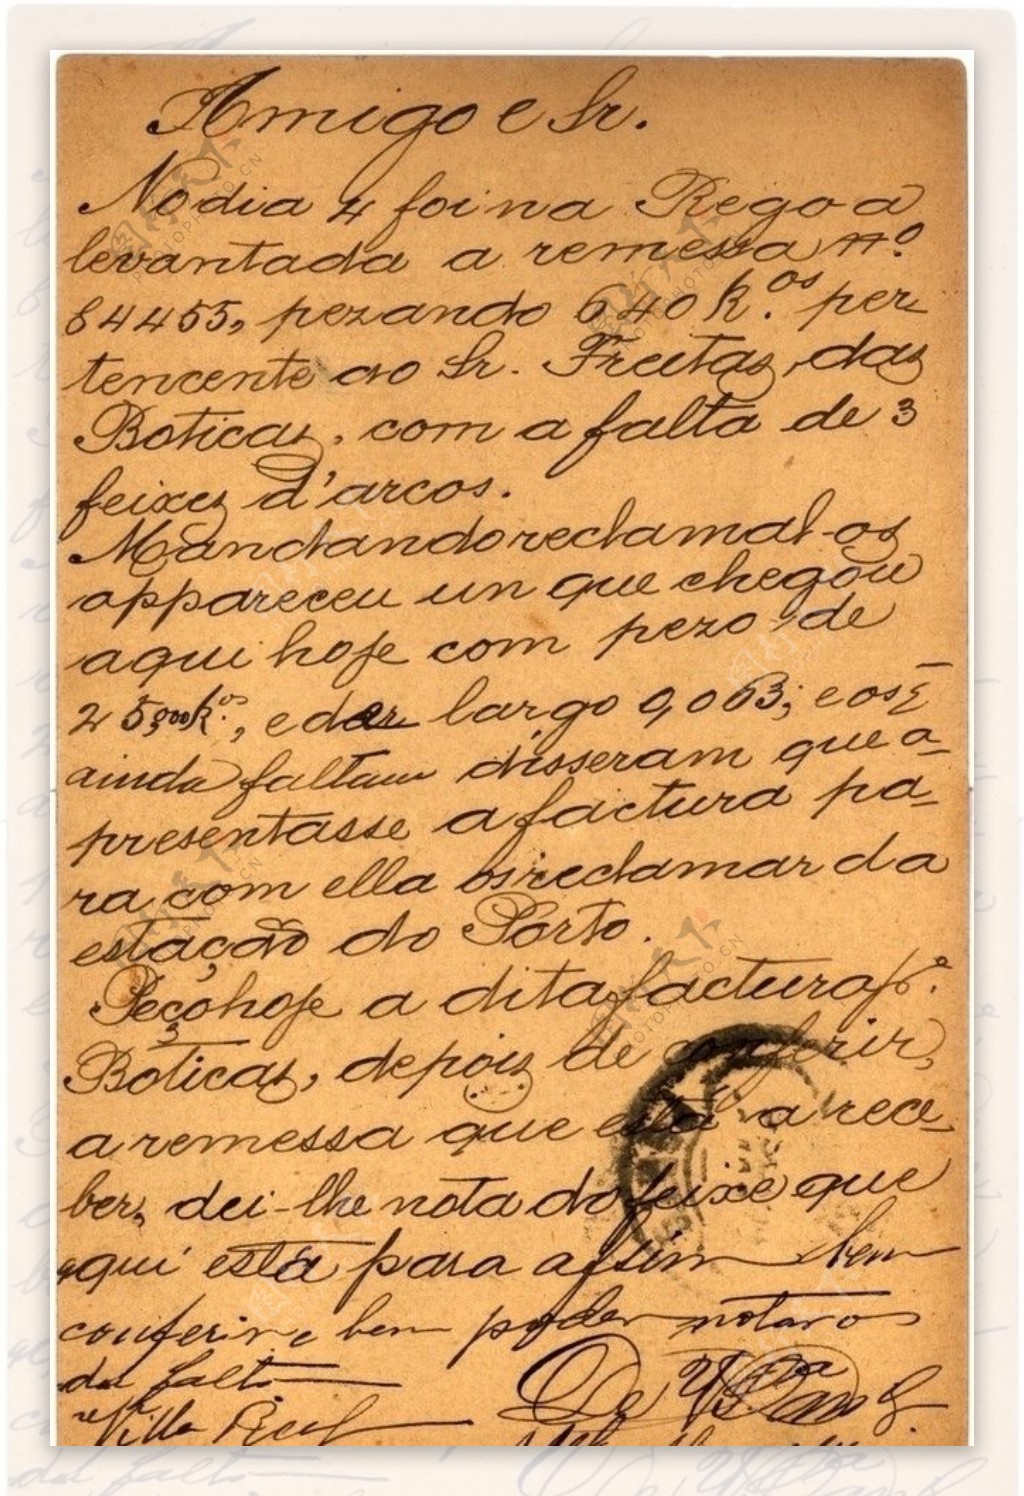 Amigo e Sr.
No dia 4 foi na Regoa
levantada a remessa nº
84455, pezando 640 k.os per-
tencente ao Sr. Freitas, das
Boticas, com a falta de 3
feixes d'arcos.
Mandando reclamal-os
appareceu un que chegou
aqui hoje com pezo de
25,000 k.os, e de largo 0,063; e os q̄
ainda faltam disseram que a-
presentasse a factura pa-
ra com ella os reclamar da
estação do Porto.
Peço hoje a dita factura p.ª
Boticas, depois de conferir,
a remessa que está a rece-
ber, dei-lhe nota do feixe que
aqui está para assim bem
conferir e bem poder notar os
da falta
Villa Real
De V.